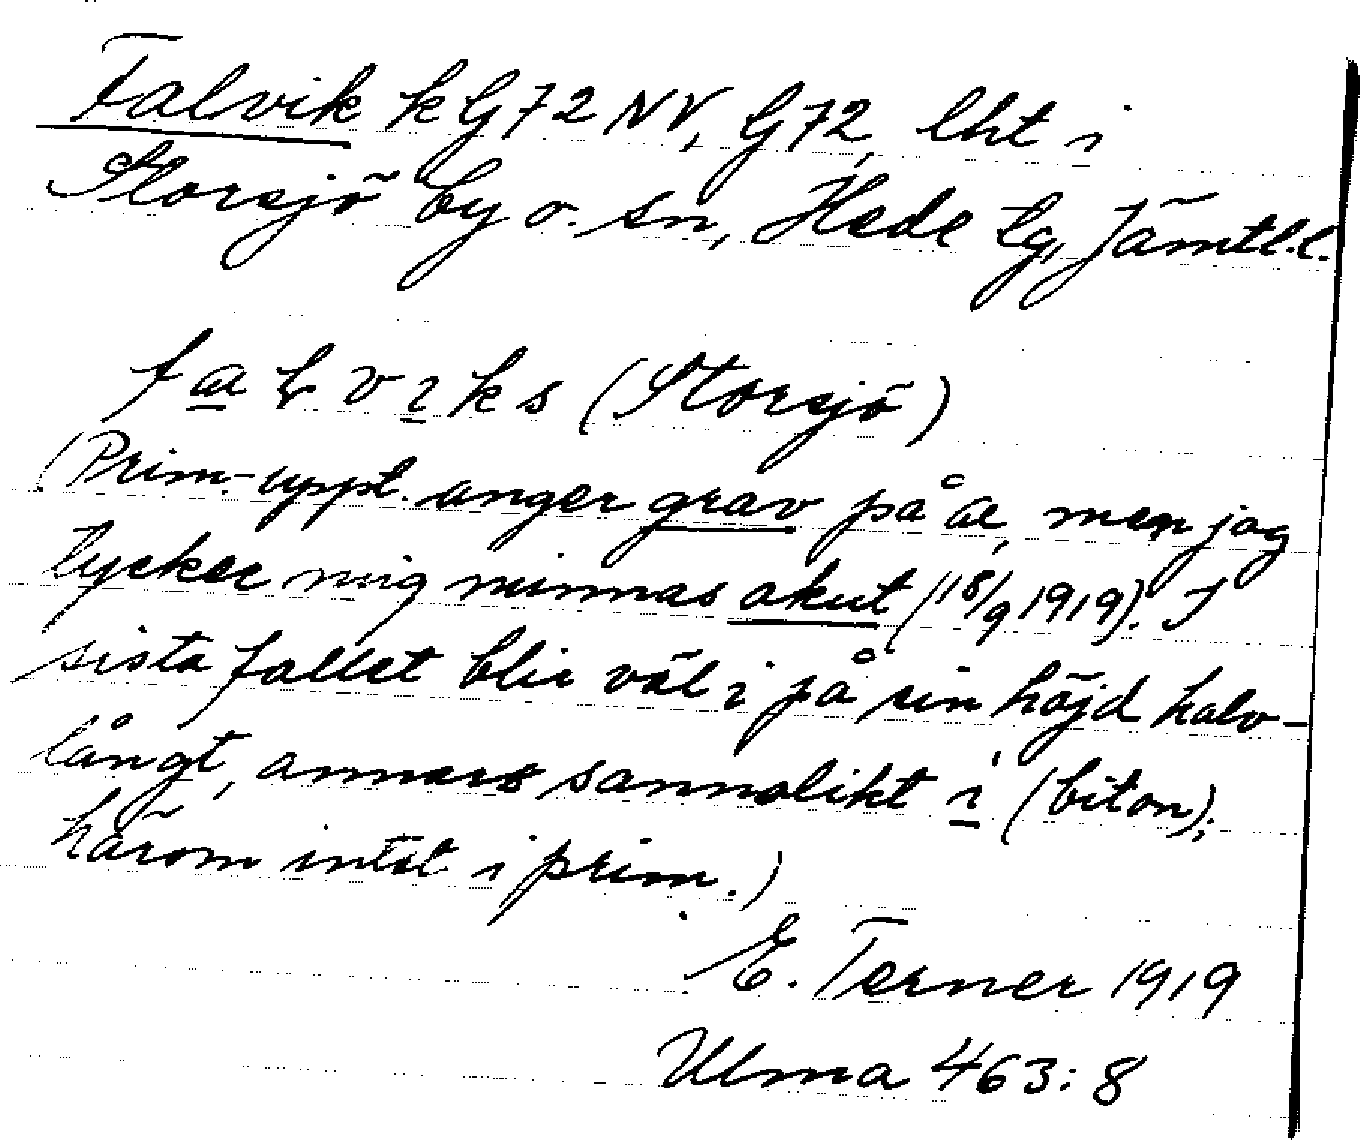 Falvik k G72NV, G72, lht i
Storsjö by o. sn, Hede tg, Jämtl.l.
fælviks (Storsjö)
(Prim.-uppt. anger grav på æ, men jag
tycker mig minnas akut (18/9 1919). I
sista fallet blir väl i på sin höjd halv-
långt, annars sannolikt i (biton);
härom intet i prim.)
E. Terner 1919
Ulma 463:8